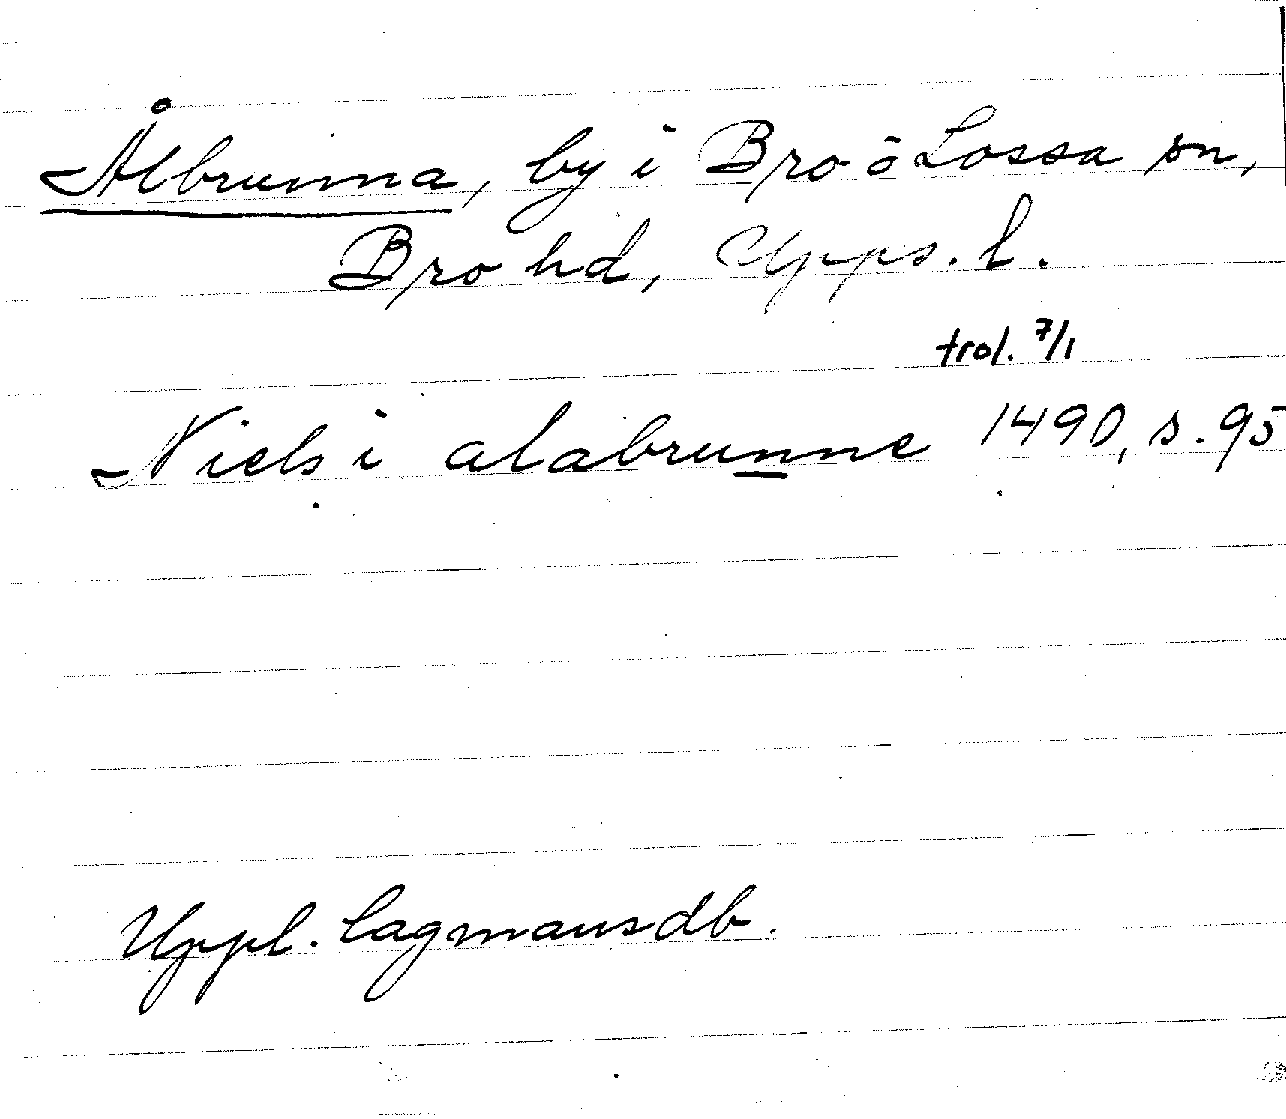 Ålbrunna, by i Bro o Lossa sn,
Bro hd, Upps. l.
trol. 7/1
Niels i alabrunne 1490, s. 95
Uppl. lagmansdb.